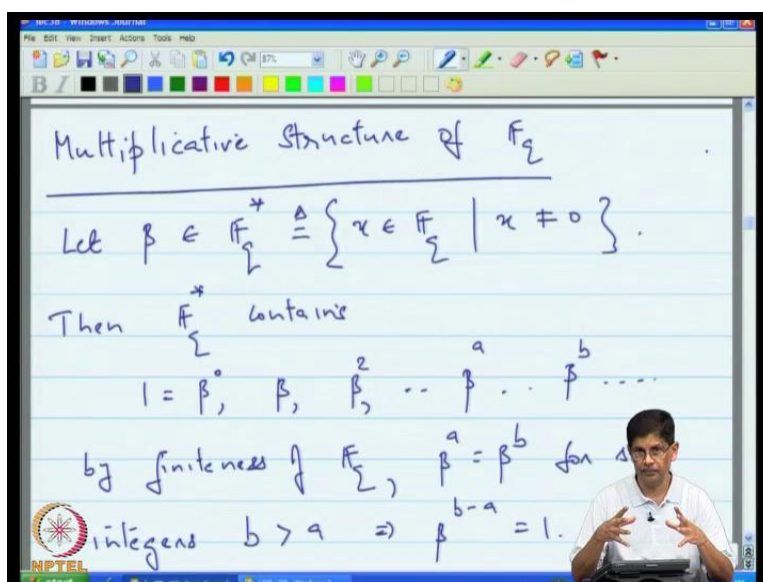 lec38 - Windows Journal
File Edit View Insert Actions Tools Help
87%
B I
Multiplicative Structure of F_q
Let β ∈ F_q^* ≜ { x ∈ F_q | x ≠ 0 } .
Then F_q^* contains
1 = β^0, β, β^2, .. β^a .. β^b ....
by finiteness of F_q, β^a = β^b for
integers b > a ⇒ β^{b-a} = 1.
NPTEL
start